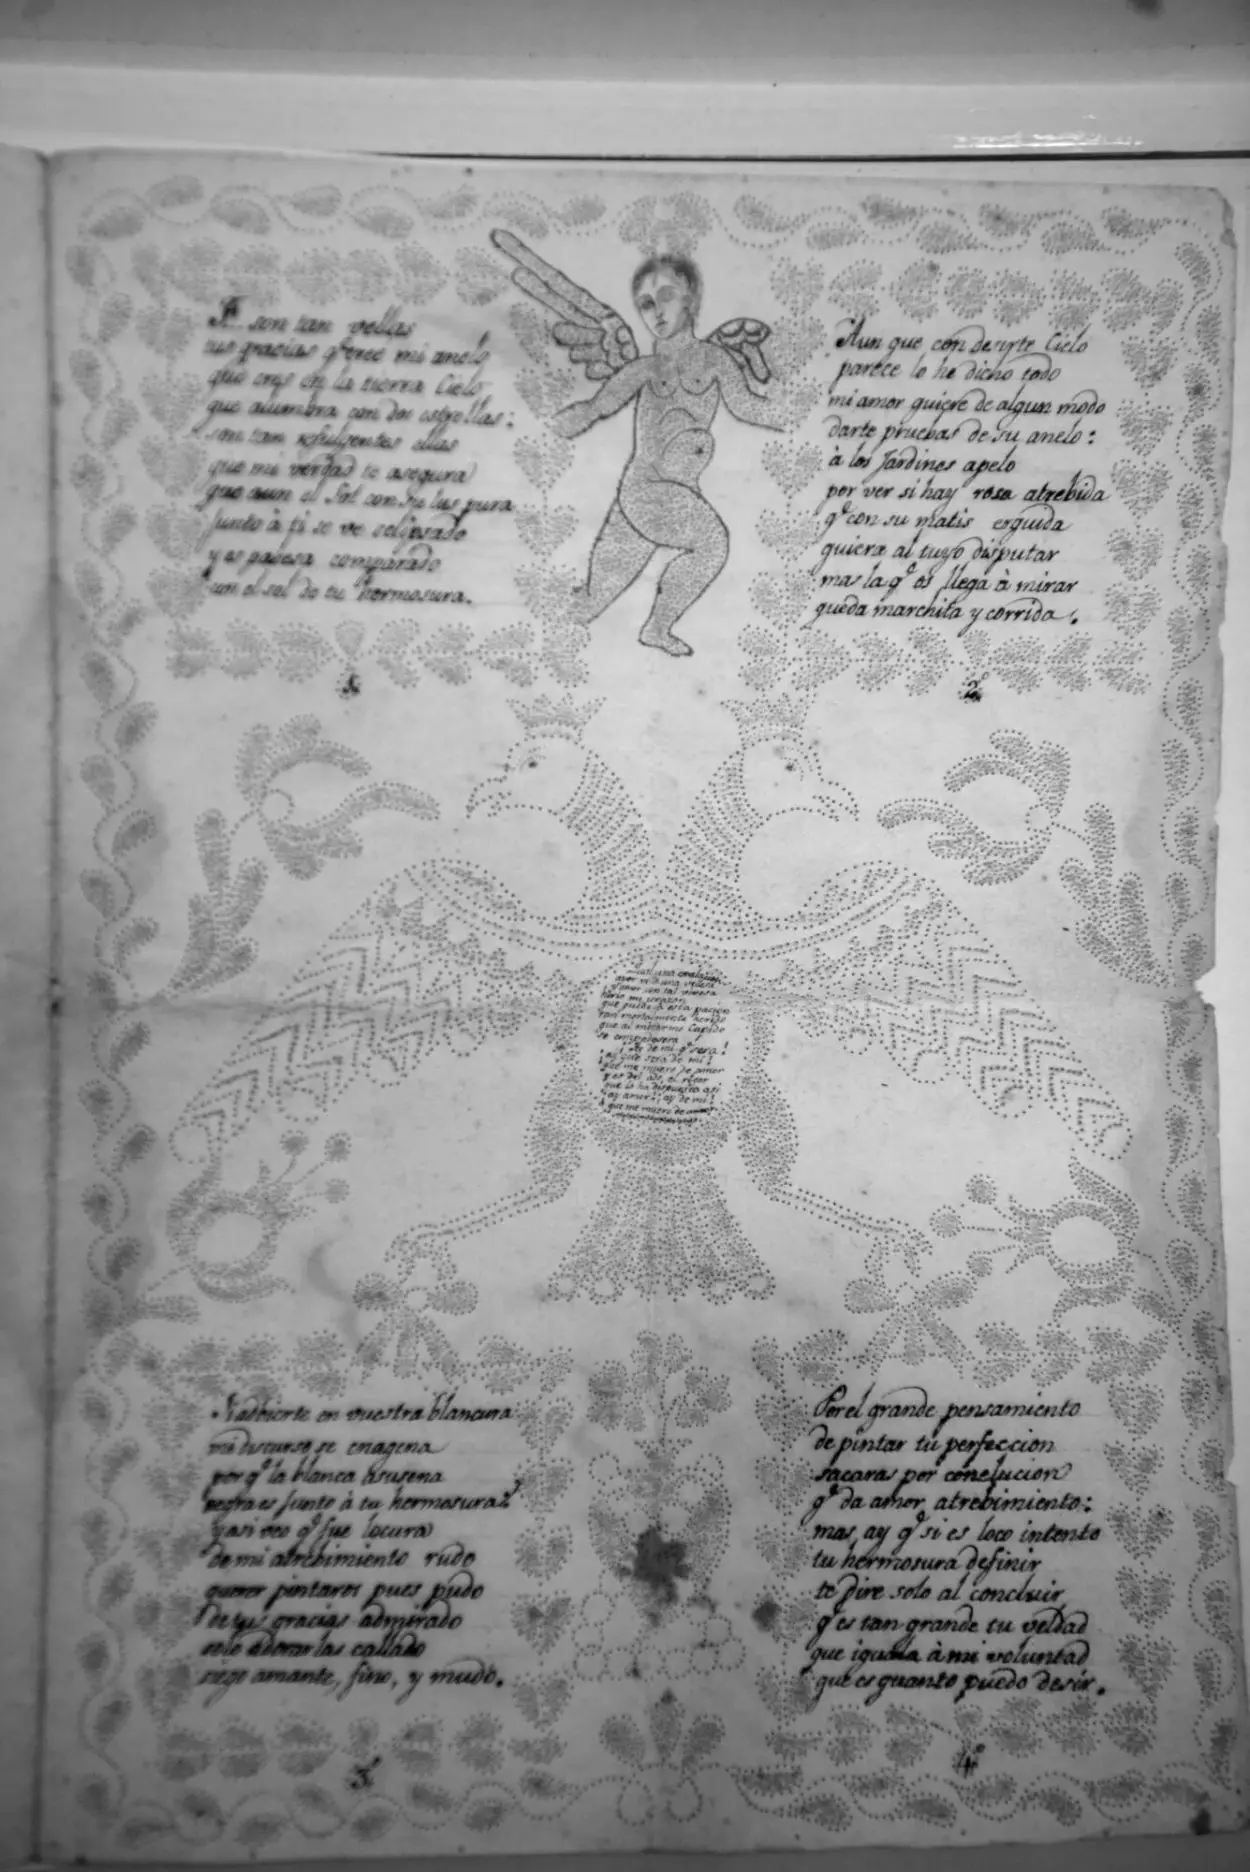 son tan vellas
tus gracias q.e cree mi anelo
que eres en la tierra Cielo
que alumbra con dos estrellas:
son tan refulgentes ellas
que mi verdad te asegura
que aun el Sol con su lus pura
junto à ti se ve eclipsado
y es pavesa comparado
con el sol de tu hermosura.
1.
Aun que con desirte Cielo
parece lo he dicho todo
mi amor quiere de algun modo
darte pruebas de su anelo:
à los Jardines apelo
por ver si hay rosa atrebida
q.e con su matis erguida
quiera al tuyo disputar
mas la q.e os llega à mirar
queda marchita y corrida.
2.
herir mi corazon
que puede à esta pacion
tan mortalmente
que al mismo Cupido
ay de mi q.e sera!
ay que sera de mi!
que me muero de amor
que lo ha dispuesto asi
ay amor! ay de mi!
que me muero de amor
Si advierte en vuestra blancura
mi discurso se enagena
por q.e la blanca asusena
negra es junto à tu hermosura:
y asi veo q.e fue locura
de mi atrebimiento rudo
querer pintaros pues pudo
de tus gracias admirado
solo adorarlas callado
ciego amante, fino, y mudo.
3.
Por el grande pensamiento
de pintar tu perfeccion
sacaras por conclucion
q.e da amor atrebimiento:
mas, ay q.e si es loco intento
tu hermosura definir
te dire solo al concluir
q.e es tan grande tu veldad
que iguala à mi voluntad
que es quanto puedo desir.
4.